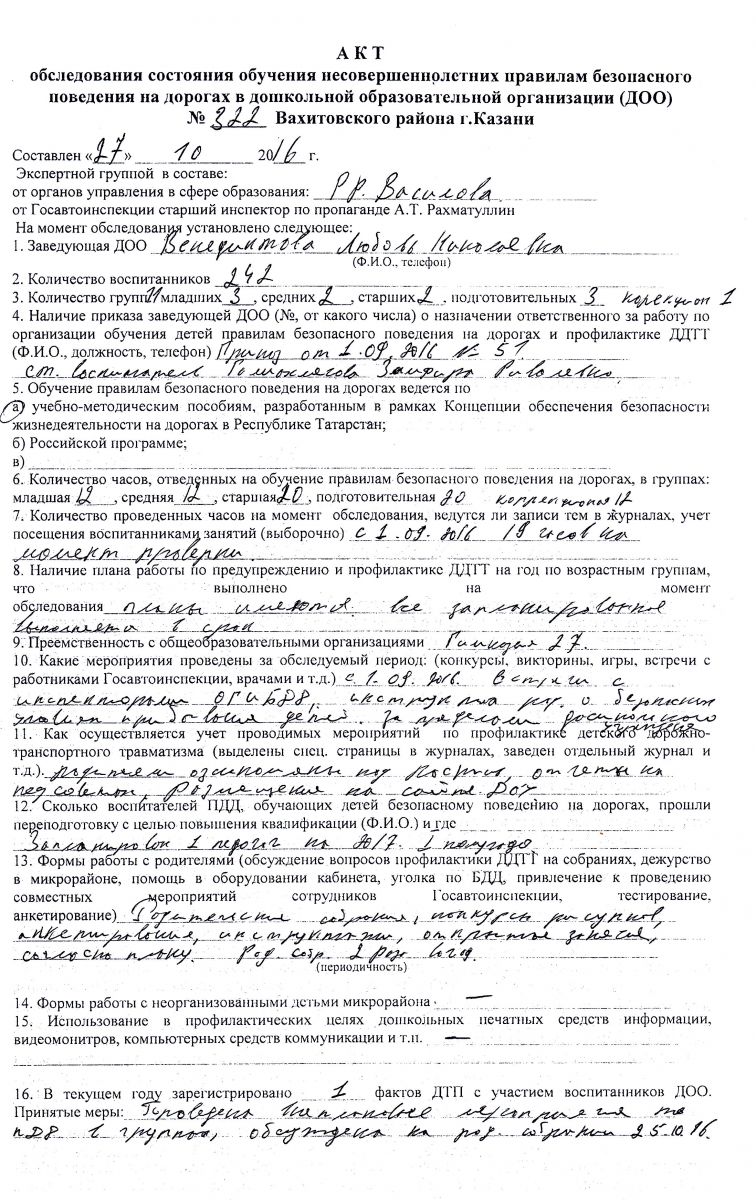 А К Т
обследования состояния обучения несовершеннолетних правилам безопасного
поведения на дорогах в дошкольной образовательной организации (ДОО)
№ 322 Вахитовского района г.Казани
Составлен «27» 10 2016 г.
Экспертной группой в составе:
от органов управления в сфере образования: Р.Р. Василова
от Госавтоинспекции старший инспектор по пропаганде А.Т. Рахматуллин
На момент обследования установлено следующее:
1. Заведующая ДОО Венедиктова Любовь Николаевна
(Ф.И.О., телефон)
2. Количество воспитанников 242
3. Количество групп 11 младших 3, средних 2, старших 2, подготовительных 3 корекцион 1
4. Наличие приказа заведующей ДОО (№, от какого числа) о назначении ответственного за работу по
организации обучения детей правилам безопасного поведения на дорогах и профилактике ДДТТ
(Ф.И.О., должность, телефон) Приказ от 1.09.2016 № 51
ст. воспитатель
5. Обучение правилам безопасного поведения на дорогах ведется по
а) учебно-методическим пособиям, разработанным в рамках Концепции обеспечения безопасности
жизнедеятельности на дорогах в Республике Татарстан;
б) Российской программе;
в)
6. Количество часов, отведенных на обучение правилам безопасного поведения на дорогах, в группах:
младшая 12, средняя 12, старшая 20, подготовительная 20 коррекционая 12
7. Количество проведенных часов на момент обследования, ведутся ли записи тем в журналах, учет
посещения воспитанниками занятий (выборочно) с 1.09.2016 19 часов на
момент проверки
8. Наличие плана работы по предупреждению и профилактике ДДТТ на год по возрастным группам,
что выполнено на момент
обследования планы имеются все запланированное
выполняется в срок
9. Преемственность с общеобразовательными организациями Гимназия 27.
10. Какие мероприятия проведены за обследуемый период: (конкурсы, викторины, игры, встречи с
работниками Госавтоинспекции, врачами и т.д.) с 1.09.2016. Встречи с
инспекторами ОГИБДД, детей за пределами дошкольного
учреждения
11. Как осуществляется учет проводимых мероприятий по профилактике детского дорожно-
транспортного травматизма (выделены спец. страницы в журналах, заведен отдельный журнал и
т.д.). родители ознакомлены под роспись, отчеты на
педсоветах, размещение на сайте ДОУ
12. Сколько воспитателей ПДД, обучающих детей безопасному поведению на дорогах, прошли
переподготовку с целью повышения квалификации (Ф.И.О.) и где
Запланирован 1 педагог на 2017. 1 полугодие
13. Формы работы с родителями (обсуждение вопросов профилактики ДДТТ на собраниях, дежурство
в микрорайоне, помощь в оборудовании кабинета, уголка по БДД, привлечение к проведению
совместных мероприятий сотрудников Госавтоинспекции, тестирование,
анкетирование) Родительские собрания, конкурсы рисунков,
анкетирование, инструктажи, открытые занятия,
согласно плану. Род. собр. 2 раза в год.
(периодичность)
14. Формы работы с неорганизованными детьми микрорайона —
15. Использование в профилактических целях дошкольных печатных средств информации,
видеомонитров, компьютерных средств коммуникации и т.п. —
16. В текущем году зарегистрировано 1 фактов ДТП с участием воспитанников ДОО.
Принятые меры: Проведена внеплановое мероприятие по
ПДД в группах, обсуждена на род. собрании 25.10.16.